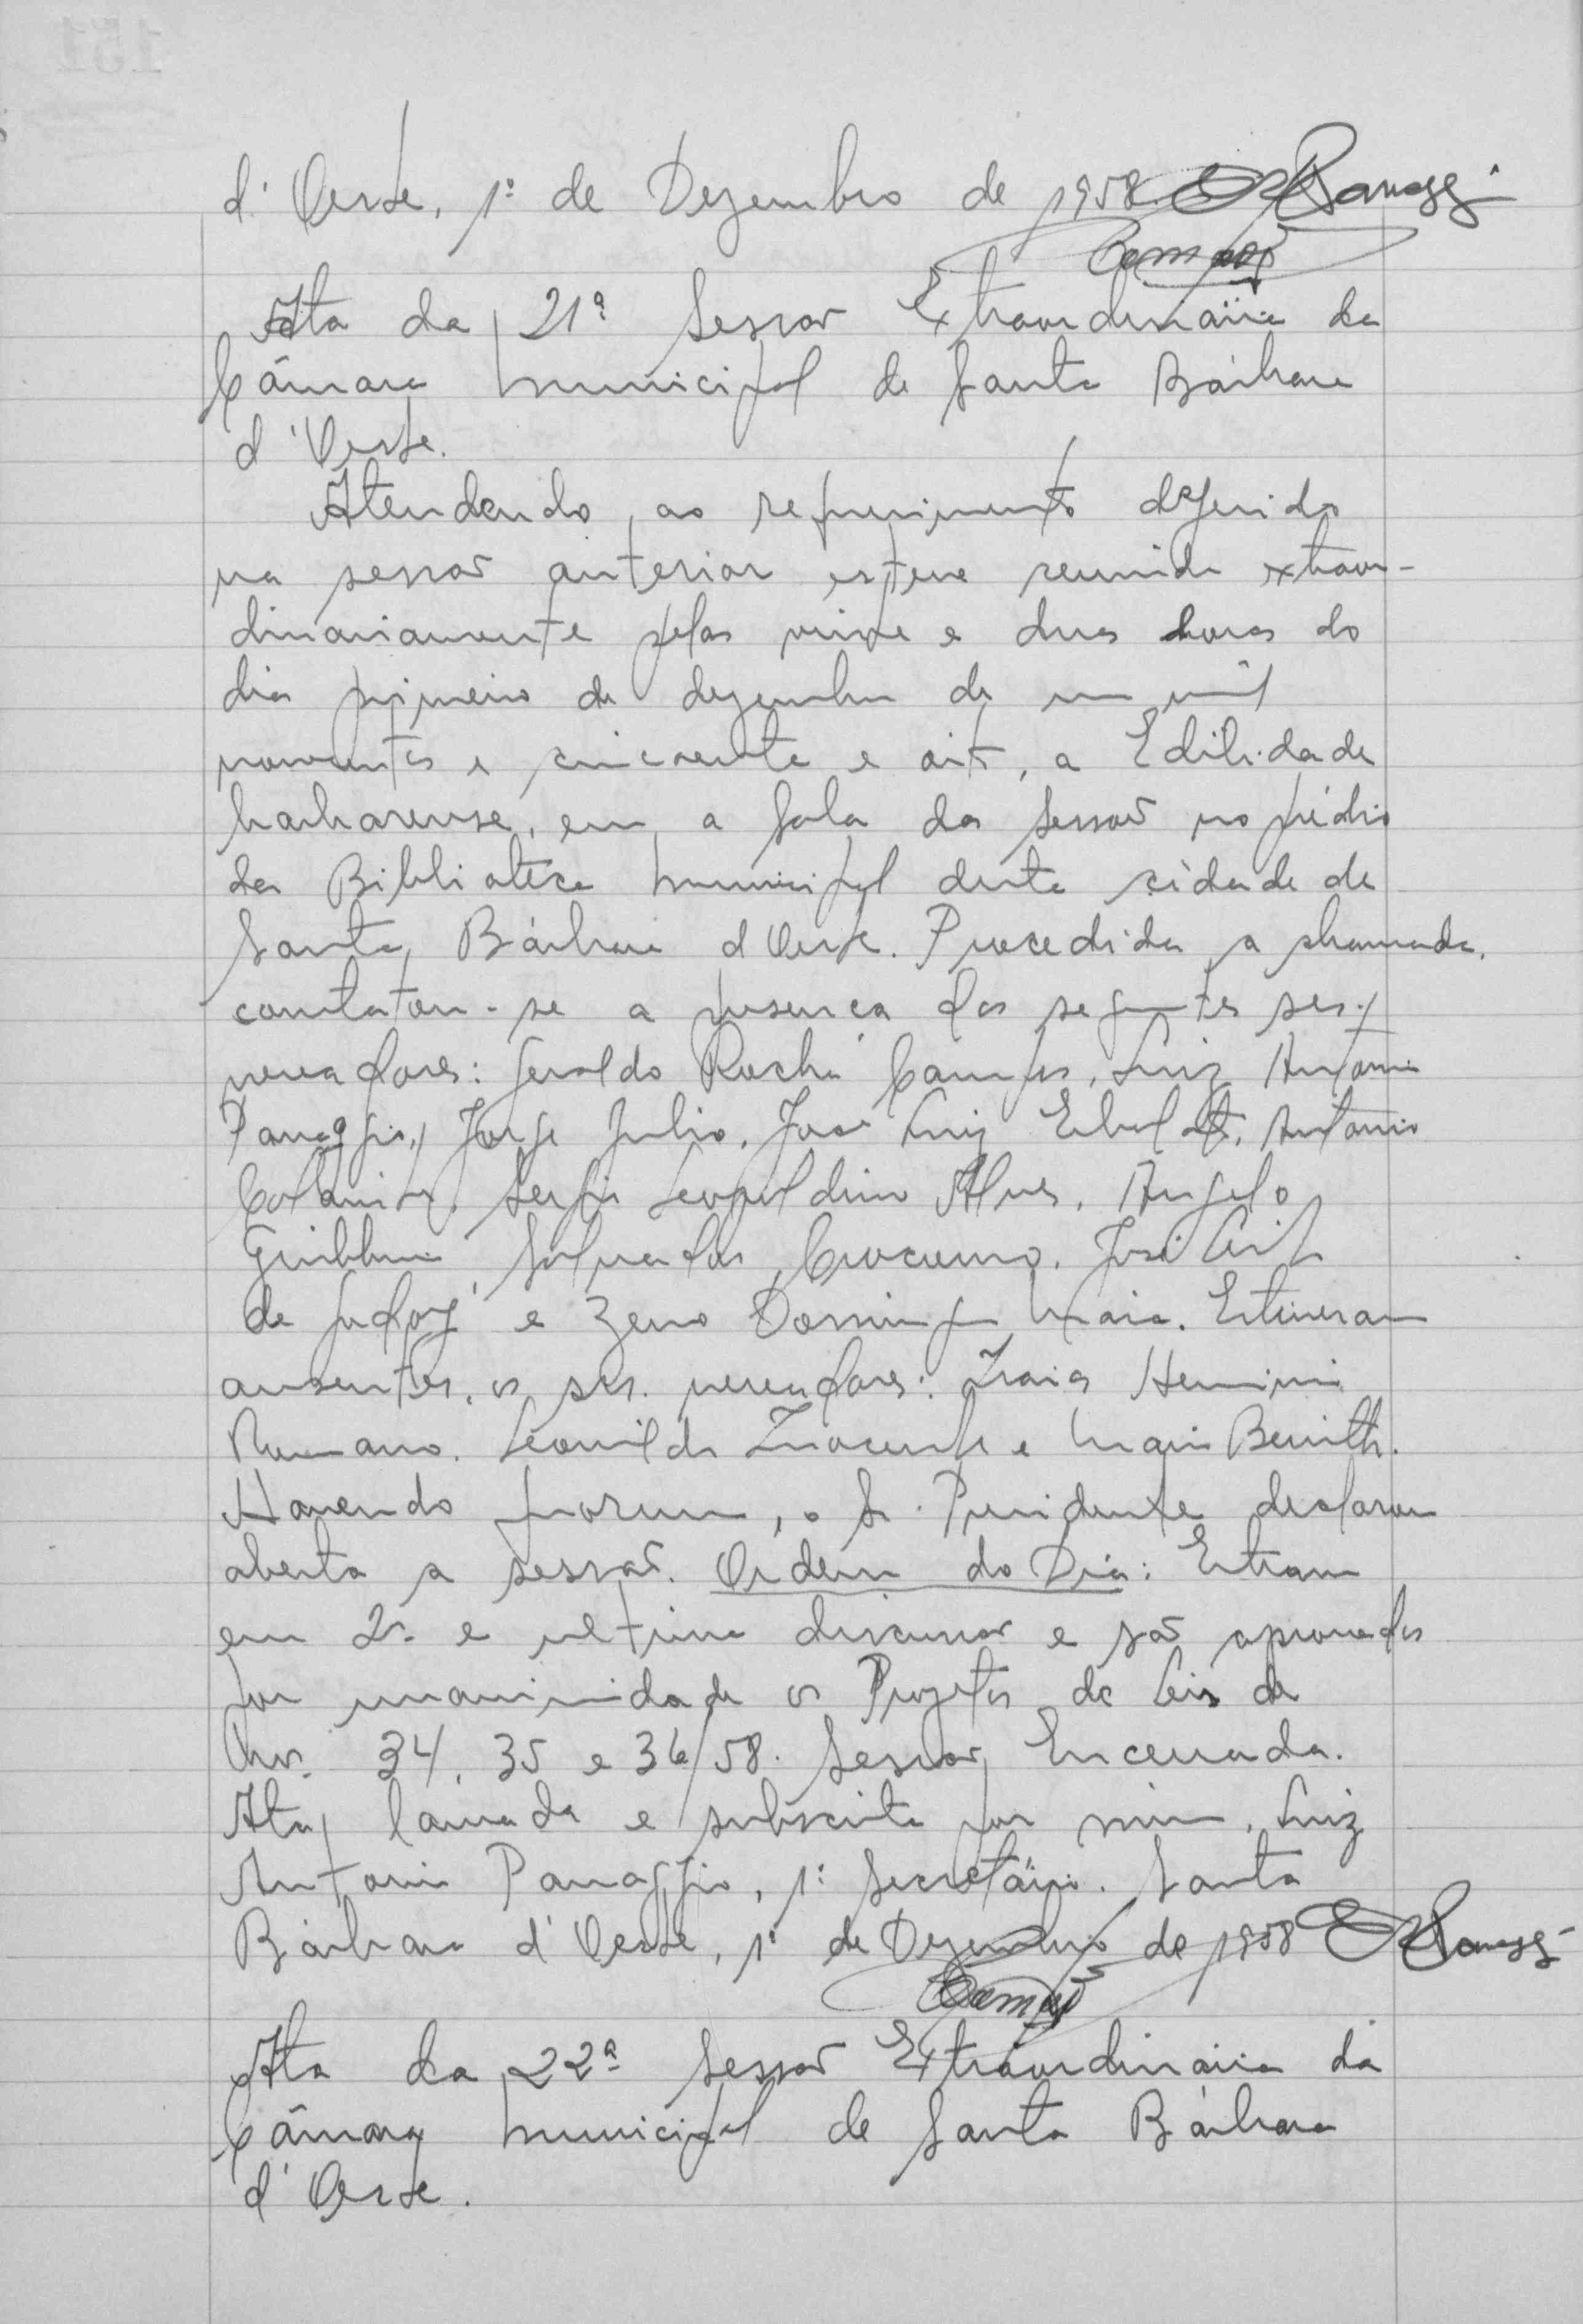 d'Oeste, 1º de Dezembro de 1958. Panaggi
Campos
Ata da 21ª Sessão Extraordinária da
Câmara Municipal de Santa Bárbara
d'Oeste.
Atendendo ao requerimento deferido
na sessão anterior esteve reunida extraor-
dinariamente pelas vinte e duas horas do
dia primeiro de dezembro de um mil
novecentos e cincoenta e oito, a Edilidade
barbarense, em a Sala da Sessão no prédio
da Biblioteca Municipal desta cidade de
Santa Bárbara d'Oeste. Procedida a chamada,
constatou-se a presença dos seguintes srs.
vereadores: Geraldo Rocha Campos, Luiz Antonio
Panaggio, Jorge Julio, José Luiz, Antonio
Sergio Leopoldino Alves, Angelo
Giubbina, Salvador, José
de Godoy e Zeno Domingos Maia. Estiveram
ausentes, os srs. vereadores: Isaias Herminio
Romano, Leonildo Inocente e Mario
Havendo quorum, o Sr. Presidente declarou
aberta a sessão. Ordem do Dia: Entram
em 2ª e ultima discussão e são aprovados
por unanimidade os Projetos de Leis de
Nrs. 34, 35 e 36/58. Sessão Encerrada.
Ata lavrada e subscrita por mim, Luiz
Antonio Panaggio, 1º Secretário. Santa
Bárbara d'Oeste, 1º de Dezembro de 1958 Panaggi
Campos
Ata da 22ª Sessão Extraordinária da
Câmara Municipal de Santa Bárbara
d'Oeste.